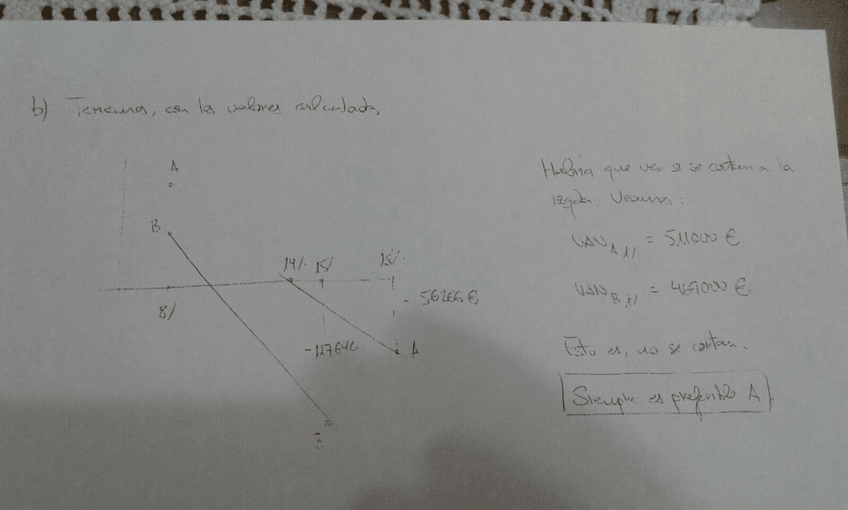 b) Tenemos, con los valores calculados,
A
B
14% 15% 18%
- 56266 €
8%
A
B
Habría que ver si se cortan a la
izqda. Veamos:
VAN A 1% = 511000 €
VAN B 1% = 469000 €
Esto es, no se cortan.
Siempre es preferible A